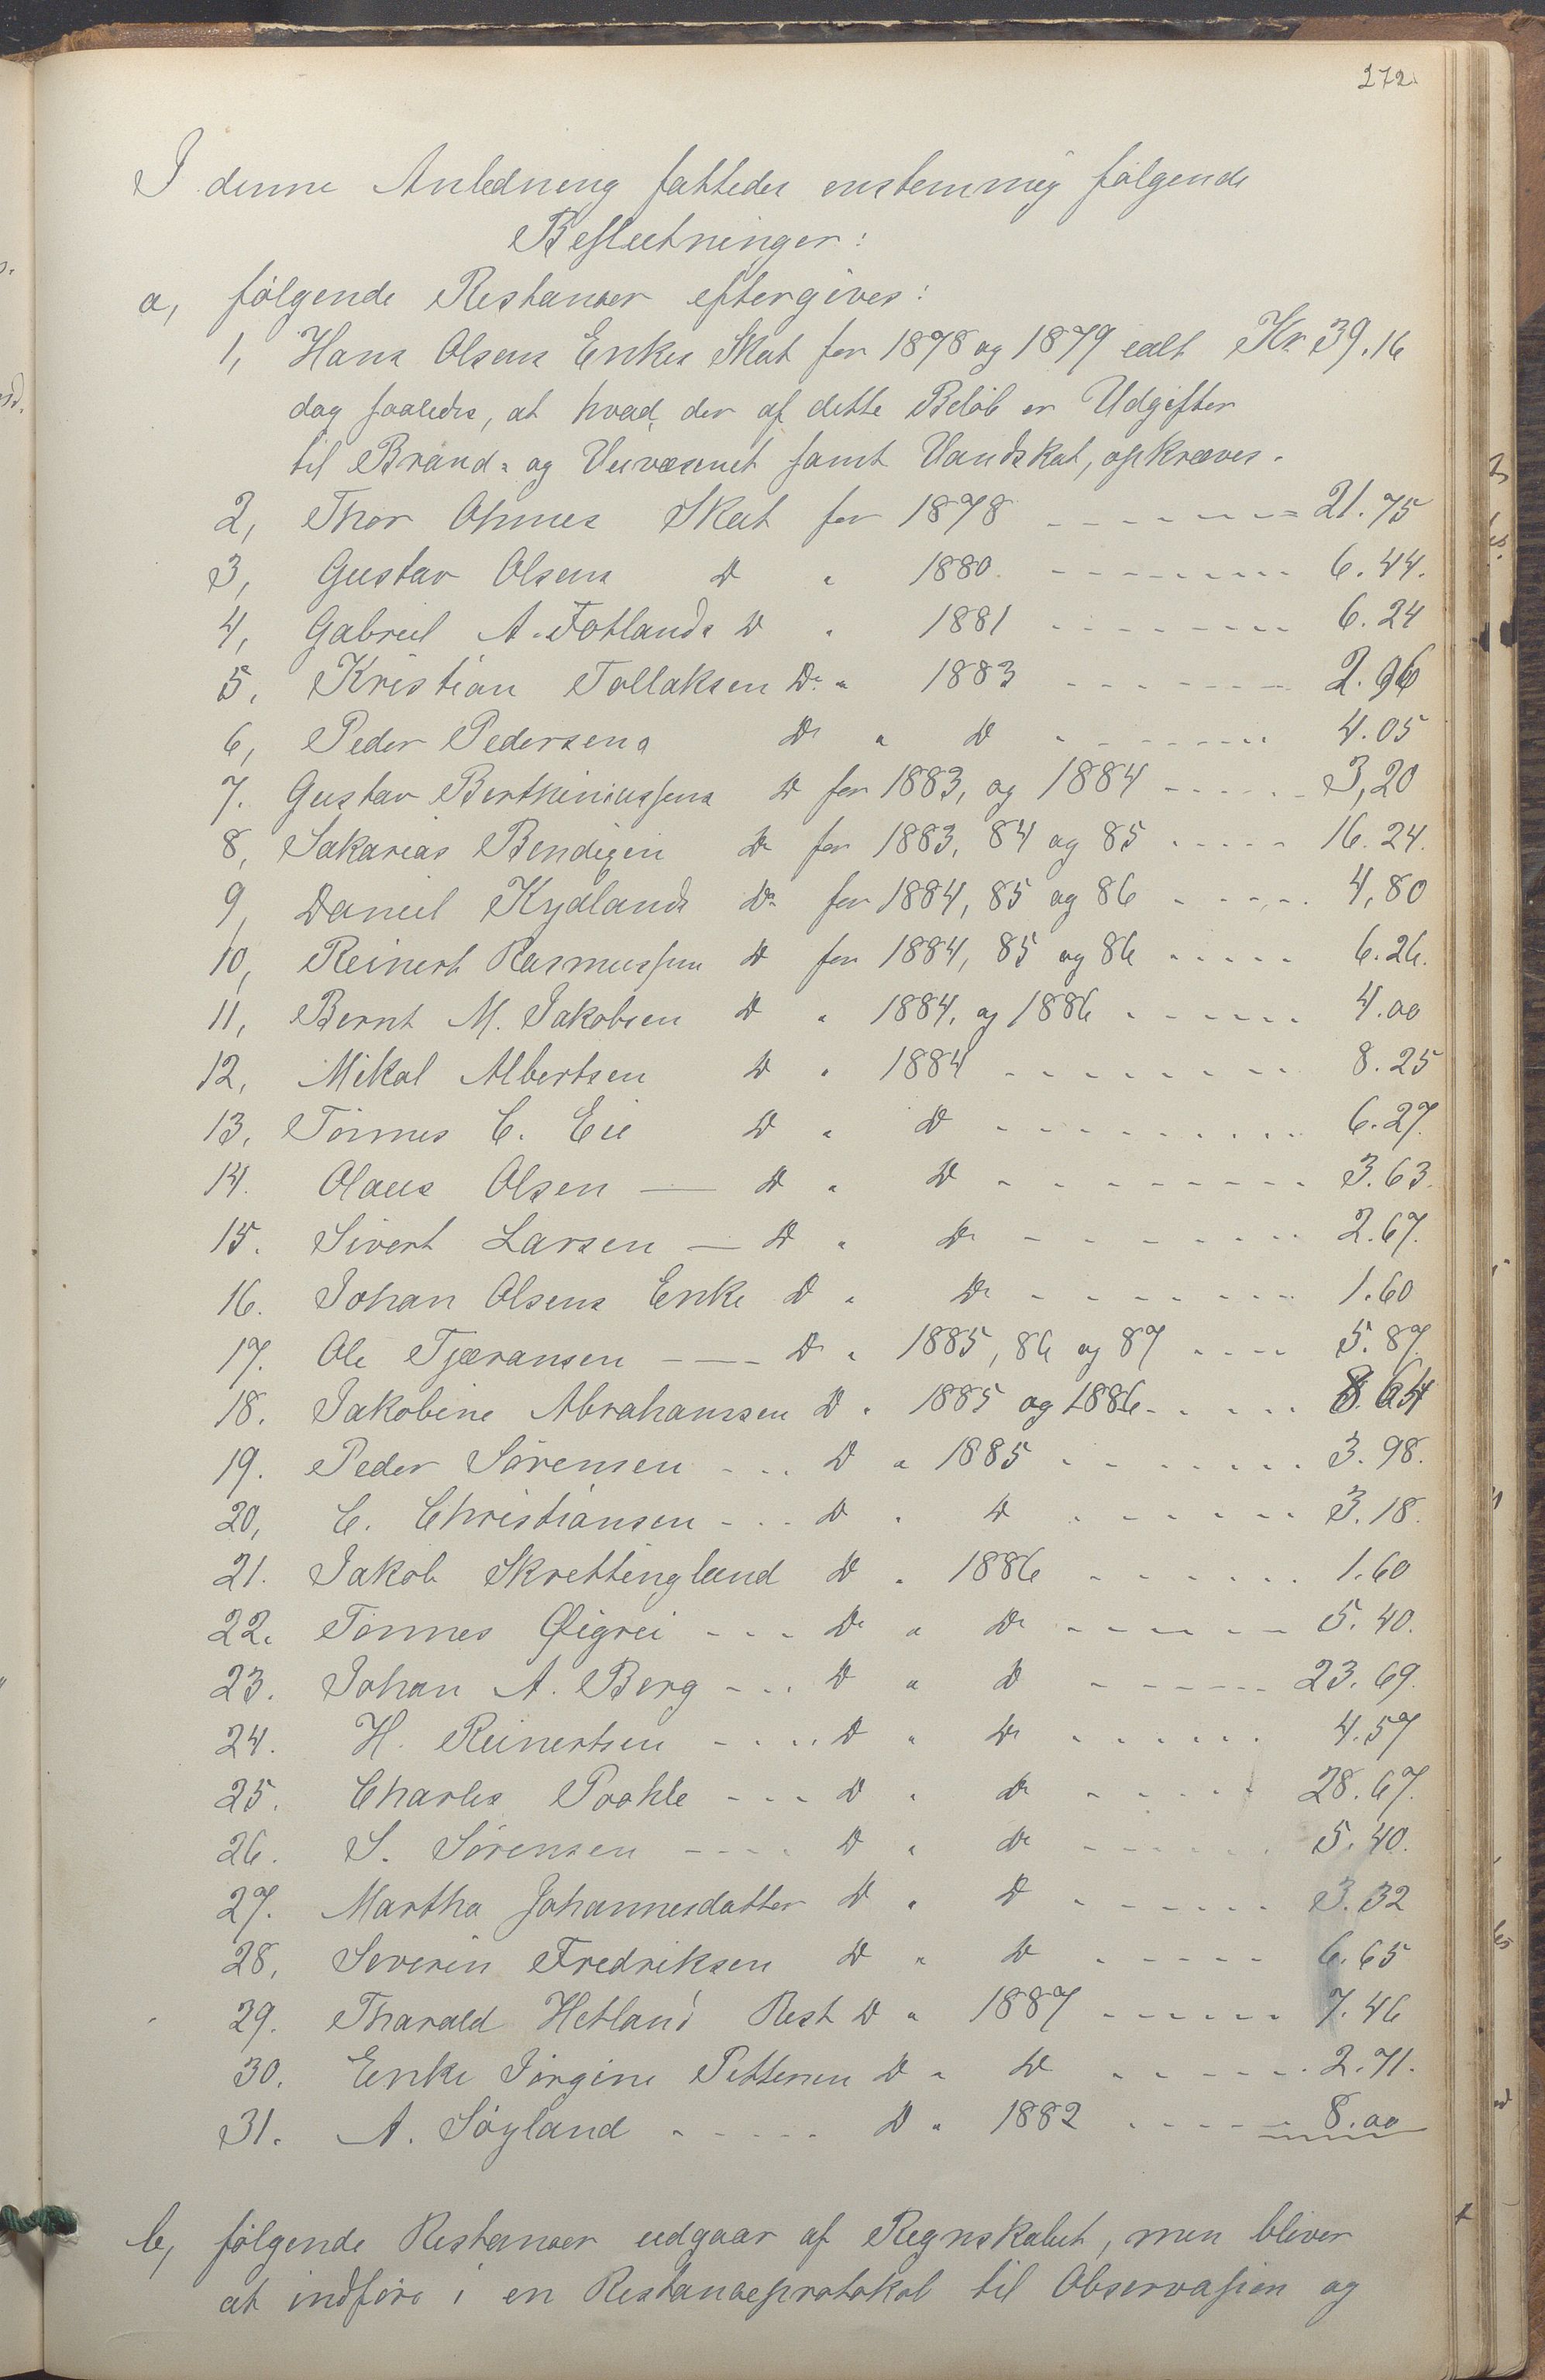 272.
I denne Anledning fattedes enstemmig følgende
Beslutninger:
a, følgende Restancer eftergives:
1, Hans Olsens Enkes Skat for 1878 og 1879 ialt Kr 39.16
dog saaledes, at hvad der af dette Beløb er Udgifter
til Brand- og Veivæsenet samt Vandskat, opkræves.
2, Thor Ohmes Skat for 1878 - - - - - - - 21.75
3, Gustav Olsens Do " 1880. - - - - - - - - 6.44.
4, Gabriel A. Fotlands Do " 1881 - - - - - - - - 6.24
5, Kristian Tollaksen Do " 1883 - - - - - - - 2.96
6, Peder Pedersens Do " Do - - - - - - - 4.05
7. Gustav Berthiniussens Do for 1883, og 1884 - - - - - - 3,20
8, Sakarias Bendixen Do for 1883, 84 og 85 - - - - - 16.24.
9, Daniel Kydlands Do for 1884, 85 og 86 - - - - - 4,80
10, Reinert Rasmussen Do for 1884, 85 og 86 - - - - - 6.26.
11, Bernt M. Jakobsen Do " 1884, og 1886 - - - - - - 4.00
12, Mikal Albertsen Do " 1884 - - - - - - - - 8.25
13, Tönnes C. Eie Do " Do - - - - - - - - - 6.27.
14. Olaus Olsen — Do " Do - - - - - - - - - 3.63.
15. Sivert Larsen — Do " Do - - - - - - - - 2.67.
16. Johan Olsens Enke Do " Do - - - - - - - - 1.60
17. Ole Tjæransen - — - Do " 1885, 86 og 87 - - - - 5.87.
18. Jakobine Abrahamsen Do " 1885 og 1886 - - - - - 8.64
19. Peder Sörensen - - - Do " 1885 - - - - - - - - 3.98.
20, C. Christiansen - - - Do " Do - - - - - - - 3.18.
21. Jakob Skrettingland Do " 1886 - - - - - - 1.60
22. Tönnes Øigrei - - - Do " Do - - - - - - 5.40.
23. Johan A. Berg - - - Do " Do - - - - - - 23.69.
24. H. Reinertsen - - - - Do " Do - - - - - - 4.57
25. Charles Poohle - - - Do " Do - - - - - 28.67.
26. S. Sörensen - - - - Do " Do - - - - - - 5.40.
27. Martha Johannesdatter Do " Do - - - - - - 3.32
28, Severin Fredriksen Do " Do - - - - - 6.65
29. Tharald Hetland Rest Do " 1887 - - - - - 7.46
30. Enke Jörgine Pettersen Do " Do - - - - - - 2.71.
31. A. Söyland - - - - - Do " 1882 - - - - - 8.00
b, følgende Restancer udgaar af Regnskabet, men bliver
at indføre i en Restanceprotokol til Observasjon og